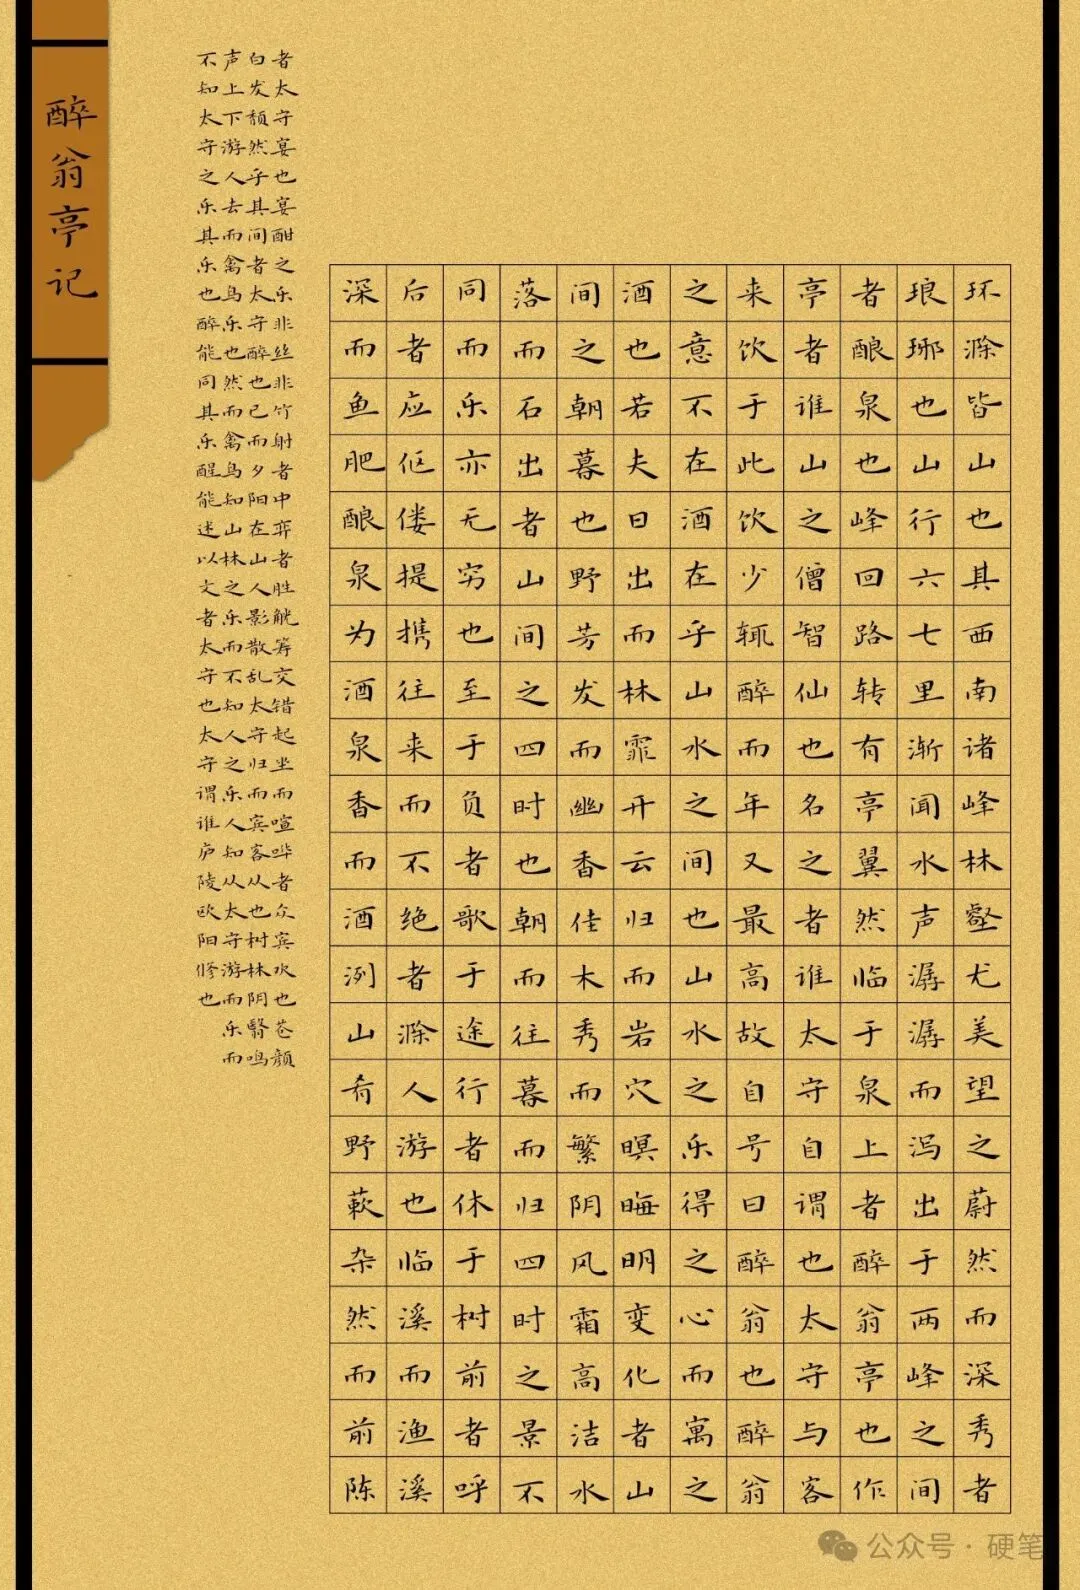 环滁皆山也其西南诸峰林壑尤美望之蔚然而深秀者
琅琊也山行六七里渐闻水声潺潺而泻出于两峰之间
者酿泉也峰回路转有亭翼然临于泉上者醉翁亭也作
亭者谁山之僧智仙也名之者谁太守自谓也太守与客
来饮于此饮少辄醉而年又最高故自号曰醉翁也醉翁
之意不在酒在乎山水之间也山水之乐得之心而寓之
酒也若夫日出而林霏开云归而岩穴暝晦明变化者山
间之朝暮也野芳发而幽香佳木秀而繁阴风霜高洁水
落而石出者山间之四时也朝而往暮而归四时之景不
同而乐亦无穷也至于负者歌于途行者休于树前者呼
后者应伛偻提携往来而不绝者滁人游也临溪而渔溪
深而鱼肥酿泉为酒泉香而酒洌山肴野蔌杂然而前陈
者太守宴也宴酣之乐非丝非竹射者中弈者胜觥筹交错起坐而喧哗者众宾欢也苍颜
白发颓然乎其间者太守醉也已而夕阳在山人影散乱太守归而宾客从也树林阴翳鸣
声上下游人去而禽鸟乐也然而禽鸟知山林之乐而不知人之乐人知从太守游而乐而
不知太守之乐其乐也醉能同其乐醒能述以文者太守也太守谓谁庐陵欧阳修也
醉翁亭记
公众号·硬笔